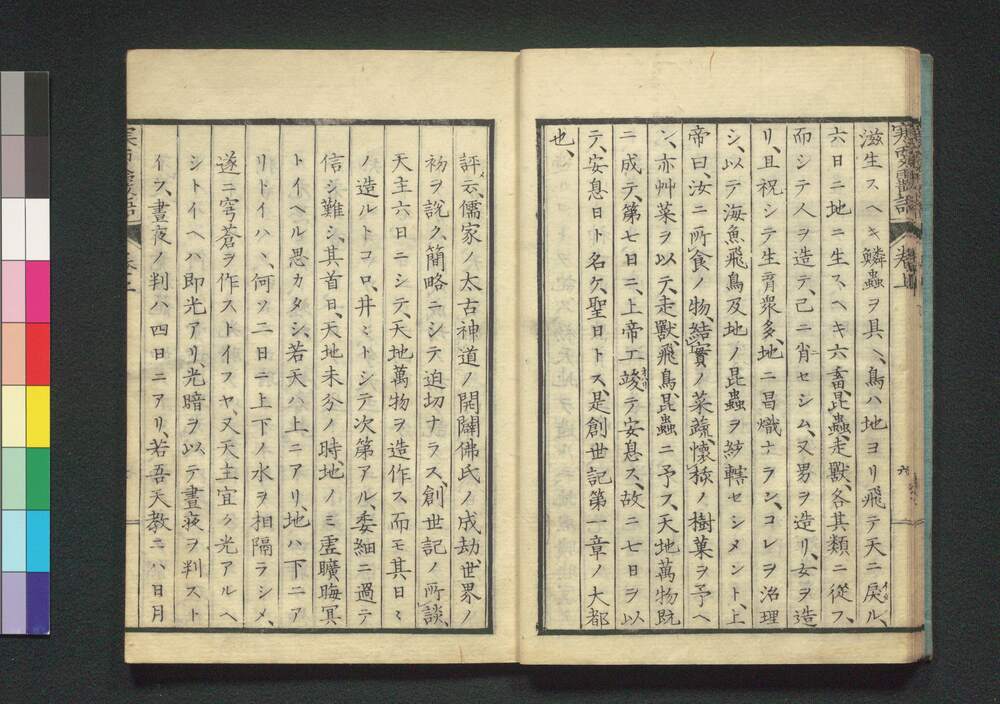 滋生スヘキ鱗蟲ヲ具ヘ、鳥ハ地ヨリ飛テ天ニ戻ル、
六日ニ地ニ生スヘキ六畜、昆蟲、走獸、各其類ニ從フ、
而シテ人ヲ造テ、己ニ肖セシム、又男ヲ造リ、女ヲ造
リ、且祝シテ生育衆多、地ニ昌熾ナラシ、コレヲ治理
シ、以テ海魚飛鳥及地ノ昆蟲ヲ轄セシメント、上
帝曰、汝ニ所食ノ物、結實ノ菜蔬、懷核ノ樹菓ヲ予ヘ
ン、亦艸菜ヲ以テ、走獸、飛鳥、昆蟲ニ予ス、天地萬物既
ニ成テ、第七日ニ、上帝工竣テ安息ス、故ニ七日ヲ以
テ、安息日ト名ク、聖日トス、是創世記第一章ノ大都
也、
評云、儒家ノ太古神道ノ開闢佛氏ノ成劫世界ノ
初ヲ說ク、簡略ニシテ迫切ナラス、創世記ノ所談、
天主六日ニシテ、天地萬物ヲ造作ス、而モ其日々
ノ造ルトコロ、井々トシテ次第アル、委細ニ過テ
信シ難シ、其首日、天地未分ノ時、地ノミ虛曠晦冥
トイヘル思カタシ、若天ハ上ニアリ、地ハ下ニア
リトイハヽ、何ソ二日ニ上下ノ水ヲ相隔ラシメ、
遂ニ穹蒼ヲ作ストイフヤ、又天主宜ク光アルヘ
シトイヘハ即光アリ、光暗ヲ以テ晝夜ヲ判スト
イフ、晝夜ノ判ハ四日ニアリ、若吾天教ニハ日月